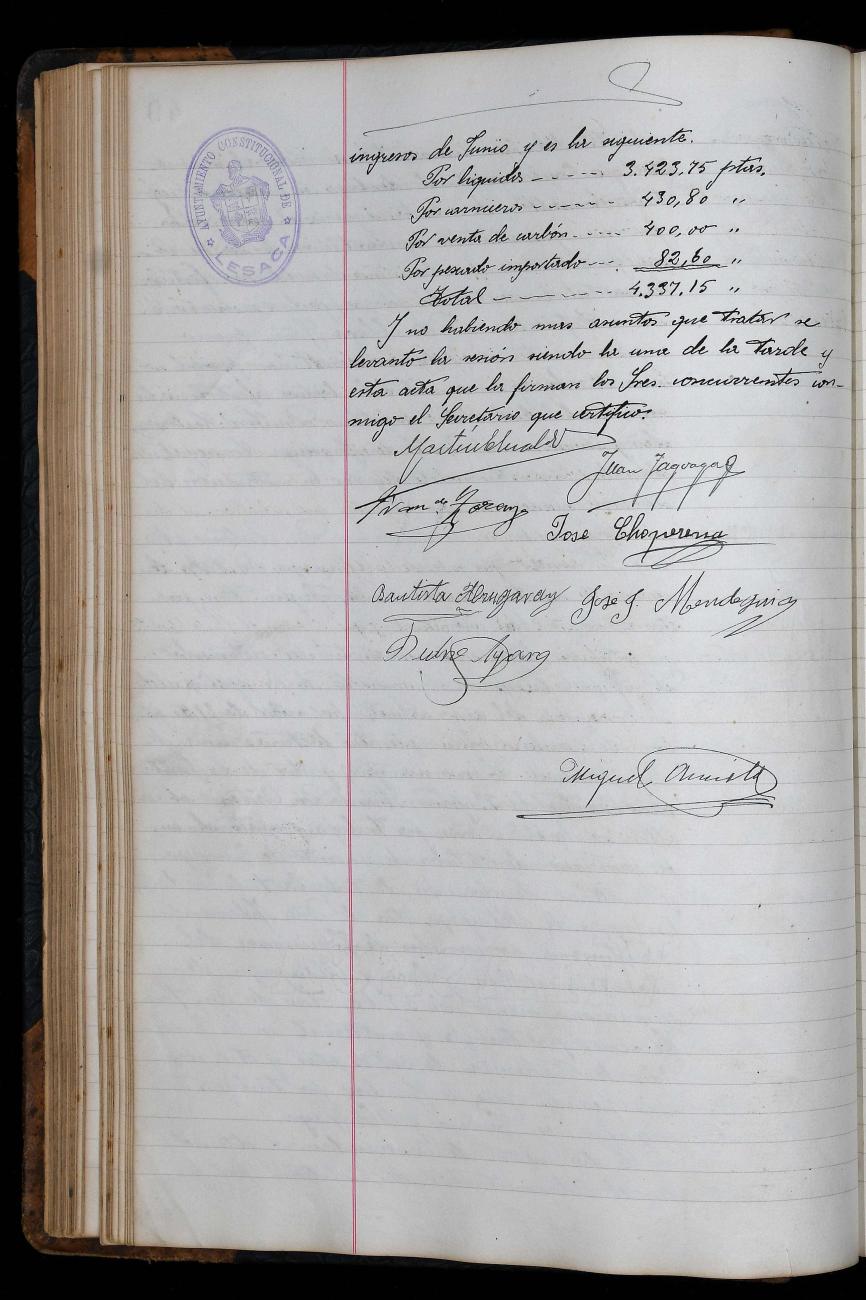 AYUNTAMIENTO CONSTITUCIONAL DE
LESACA
ingresos de Junio y es la siguiente.
Por liquidos - - - - - 3.423,75 ptas.
Por carniceros - - - - - 430,80 "
Por venta de carbón - - - - 400,00 "
Por pescado importado - - - 82,60 "
Total - - - - - 4.337,15 "
Y no habiendo mas asuntos que tratar se
levantó la sesión siendo la una de la tarde y
esta acta que la firman los Sres. concurrentes con-
migo el Secretario que certifico.
Martin
Juan
Jose Choperena
Bautista José J. Mendeguia
Miguel